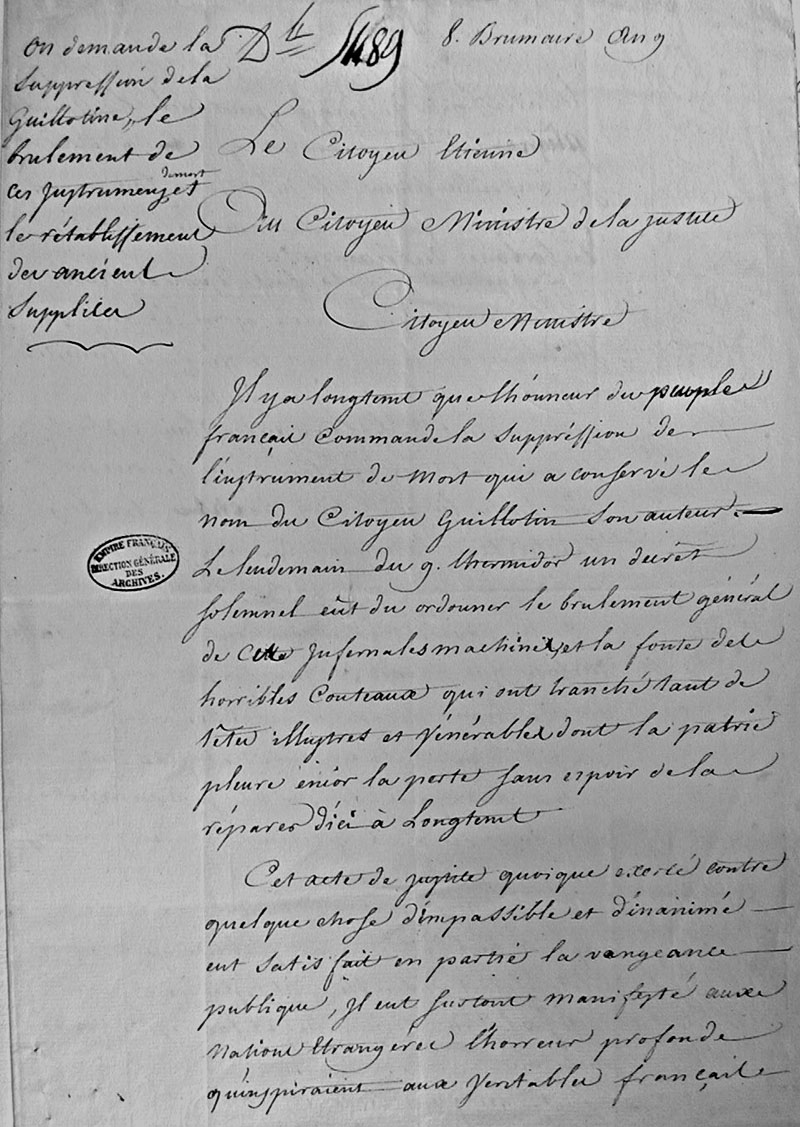 On demande la
suppression de la
Guillotine, le
brulement de
ces instrumens de mort et
le rétablissement
des anciens
supplices
5489
8. Brumaire an 9
Le Citoyen Etienne
Au Citoyen Ministre de la justice
Citoyen Ministre
Il y a longtems que l'honneur du peuple
français commande la suppression de
l'instrument de mort qui a conservé le
nom du Citoyen Guillotin son auteur.
Le lendemain du 9. thermidor un decrèt
solemnel eut du ordonner le brulement général
de cette infernales machines, et la fonte des
horribles couteaux qui ont tranché tant de
têtes illustres et vénérables dont la patrie
pleure encor la perte sans espoir de la
réparer d'ici à longtems
Cet acte de justice quoique exercé contre
quelque chose d'impassible et d'inanimé
eut satisfait en partie la vangeance
publique, il eut surtout manifesté aux
Nations Etrangères l'horreur profonde
qu'inspiraient aux veritables français
EMPIRE FRANÇAIS
DIRECTION GÉNÉRALE
DES
ARCHIVES.